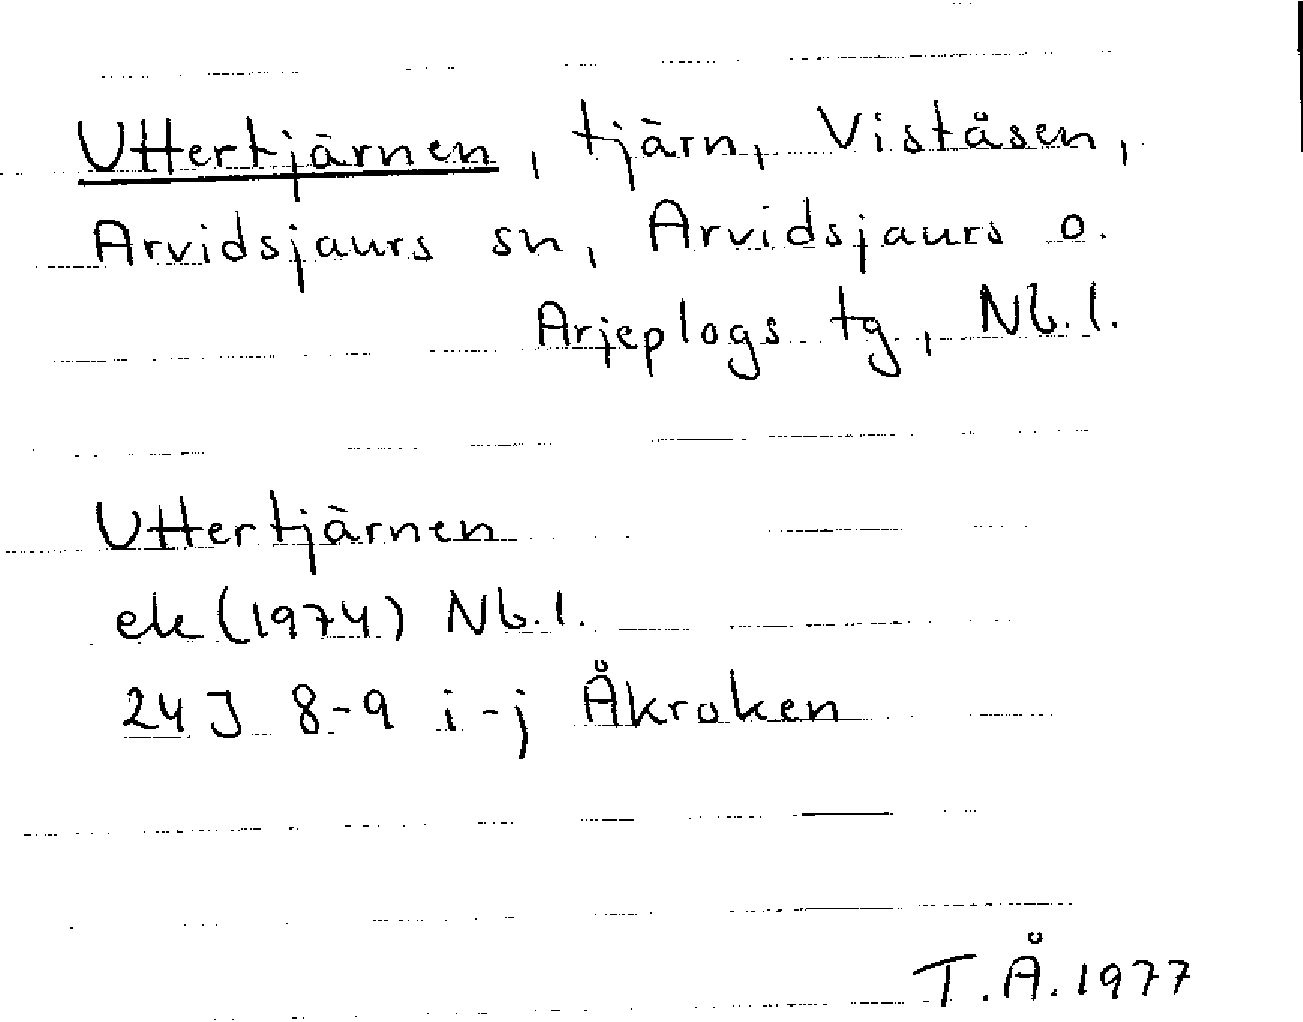 Uttertjärnen, tjärn, Viståsen,
Arvidsjaurs sn, Arvidsjaurs o.
Arjeplogs tg, Nb.l.
Uttertjärnen
ek (1974) Nb.l.
24 J 8-9 i-j Åkroken
T.Å. 1977